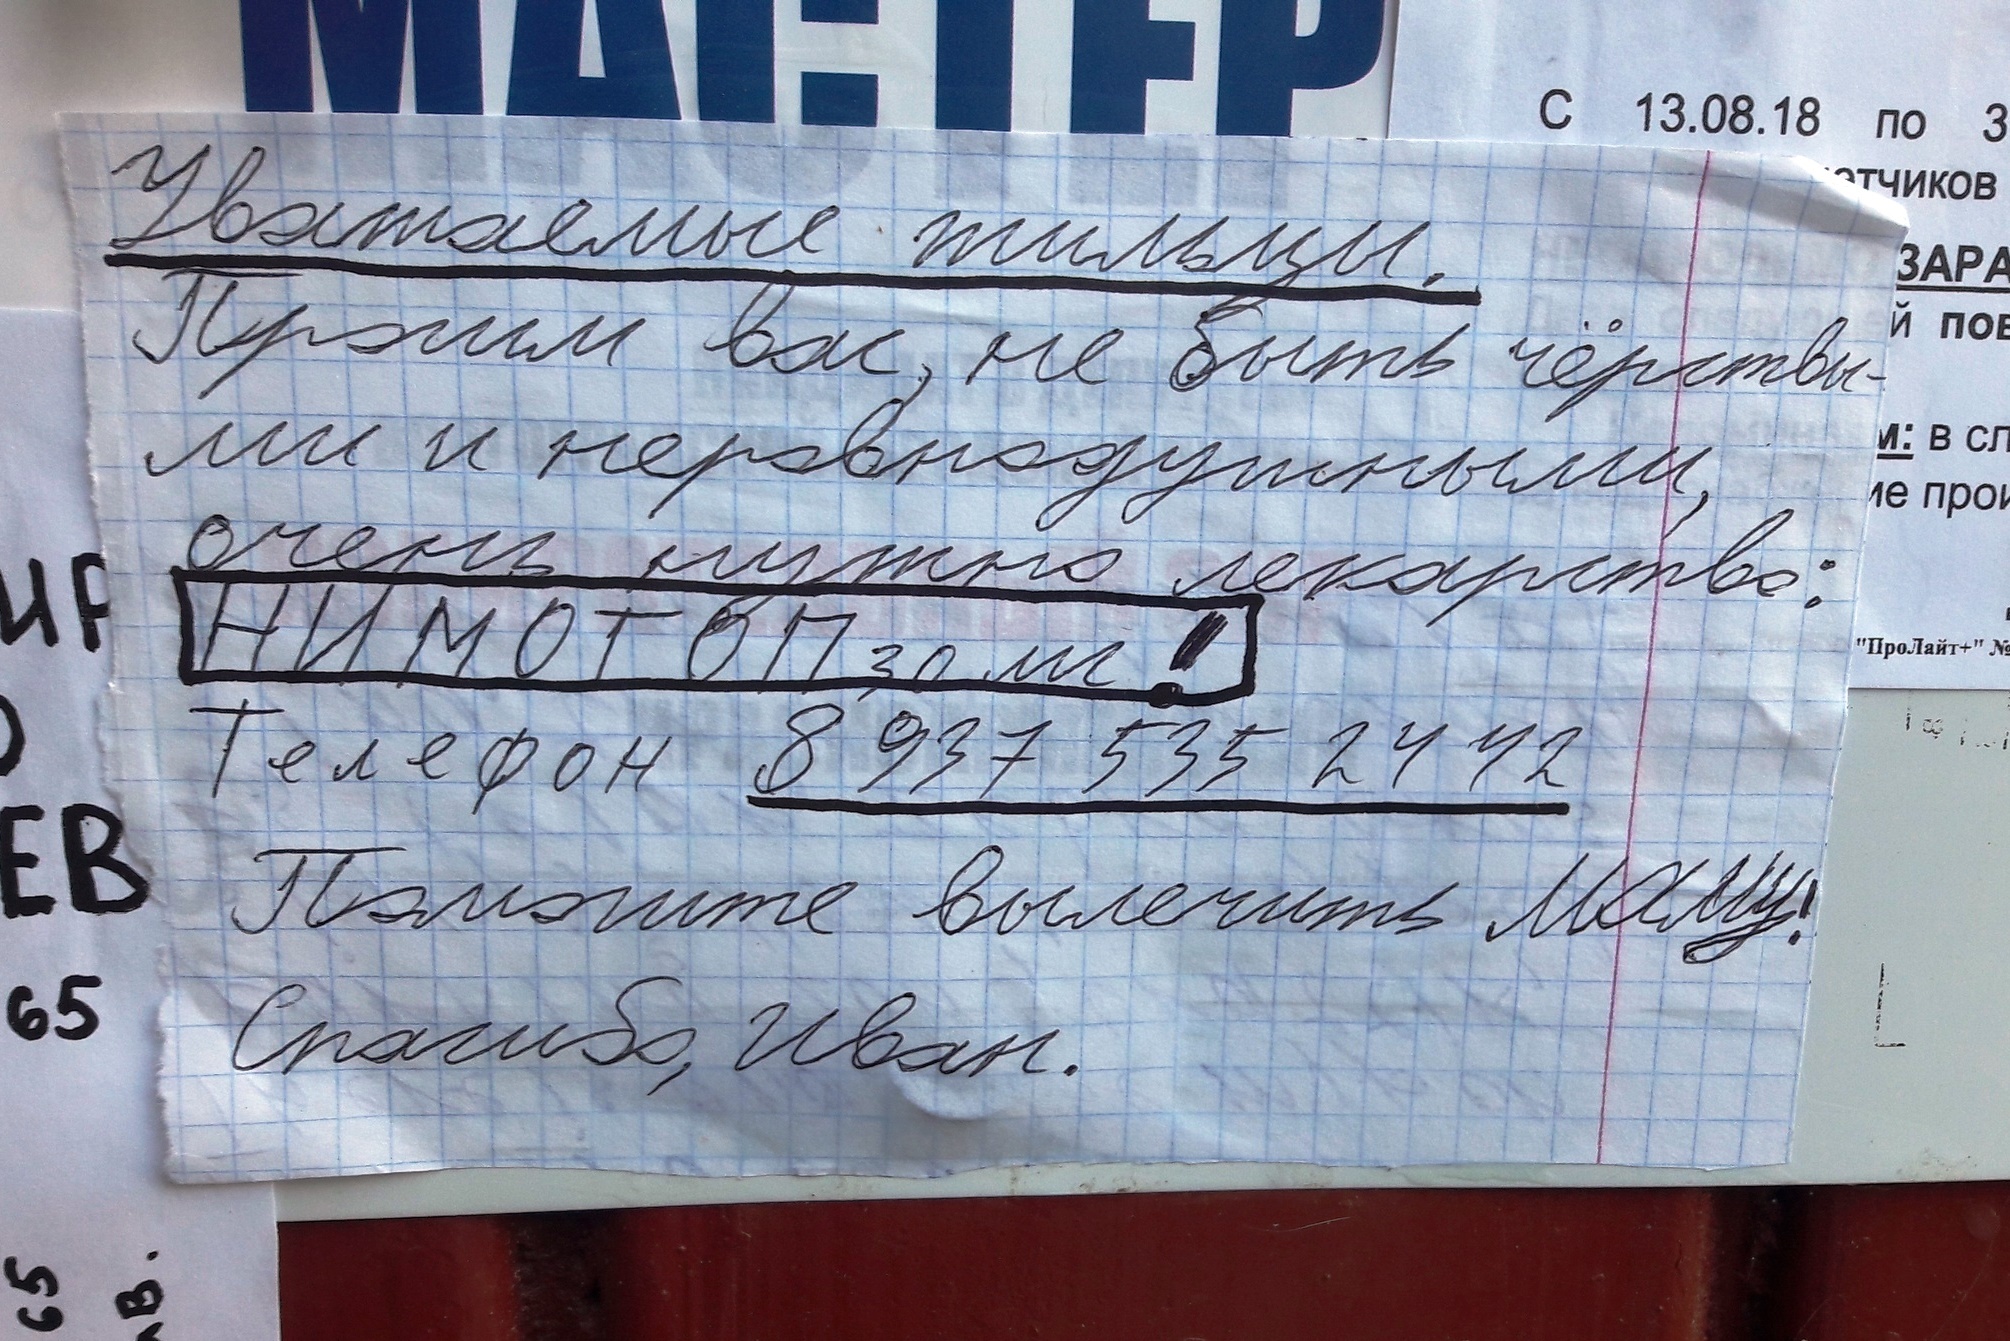 МАСТЕР
С 13.08.18 по 3
етчиков
ЗАРА
й пов
м: в сл
ие прои
"ПроЛайт+" №
Уважаемые жильцы.
Просим вас, не быть чёрствы-
ми и неравнодушными,
очень нужно лекарство:
НИМОТОП 30 мг!
Телефон 8 937 535 24 42
Поможите вылечить Маму!
Спасибо, Иван.
ЕВ
65
65